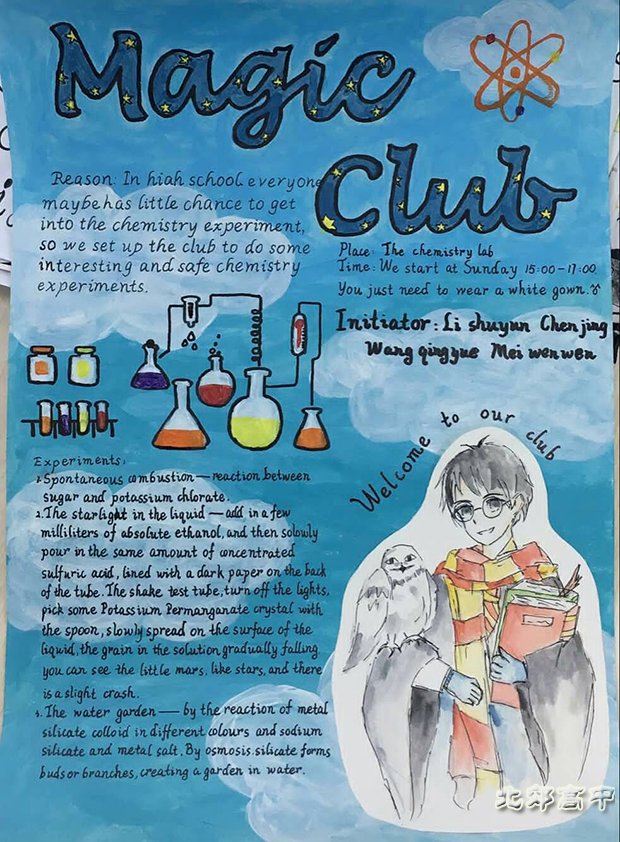 Magic
Club
Reason: In hiah school everyone
maybe has little chance to get
into the chemistry experiment,
so we set up the club to do some
interesting and safe chemistry
experiments.
Place: The chemistry lab
Time: We start at Sunday 15:00-17:00
You just need to wear a white gown.
Initiator: Li shuyun Chen jing
Wang qingyue Mei wenwen
Welcome to our club
Experiments:
1. Spontaneous combustion — reaction between
sugar and potassium chlorate.
2. The starlight in the liquid — add in a few
milliliters of absolute ethanol, and then solowly
pour in the same amount of concentrated
sulfuric acid, lined with a dark paper on the back
of the tube. The shake test tube, turn off the lights,
pick some Potassium Permanganate crystal with
the spoon, slowly spread on the surface of the
liquid, the grain in the solution gradually falling
you can see the little mars, like stars, and there
is a slight crash.
3. The water garden — by the reaction of metal
silicate colloid in different colours and sodium
silicate and metal salt. By osmosis. silicate forms
buds or branches, creating a garden in water.
北郊高中